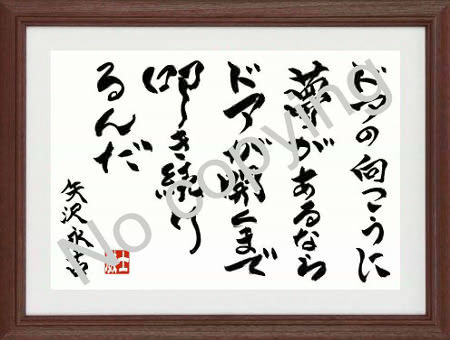 ドアの向こうに
夢があるなら
ドアが開くまで
叩き続け
るんだ
矢沢永吉
No copying